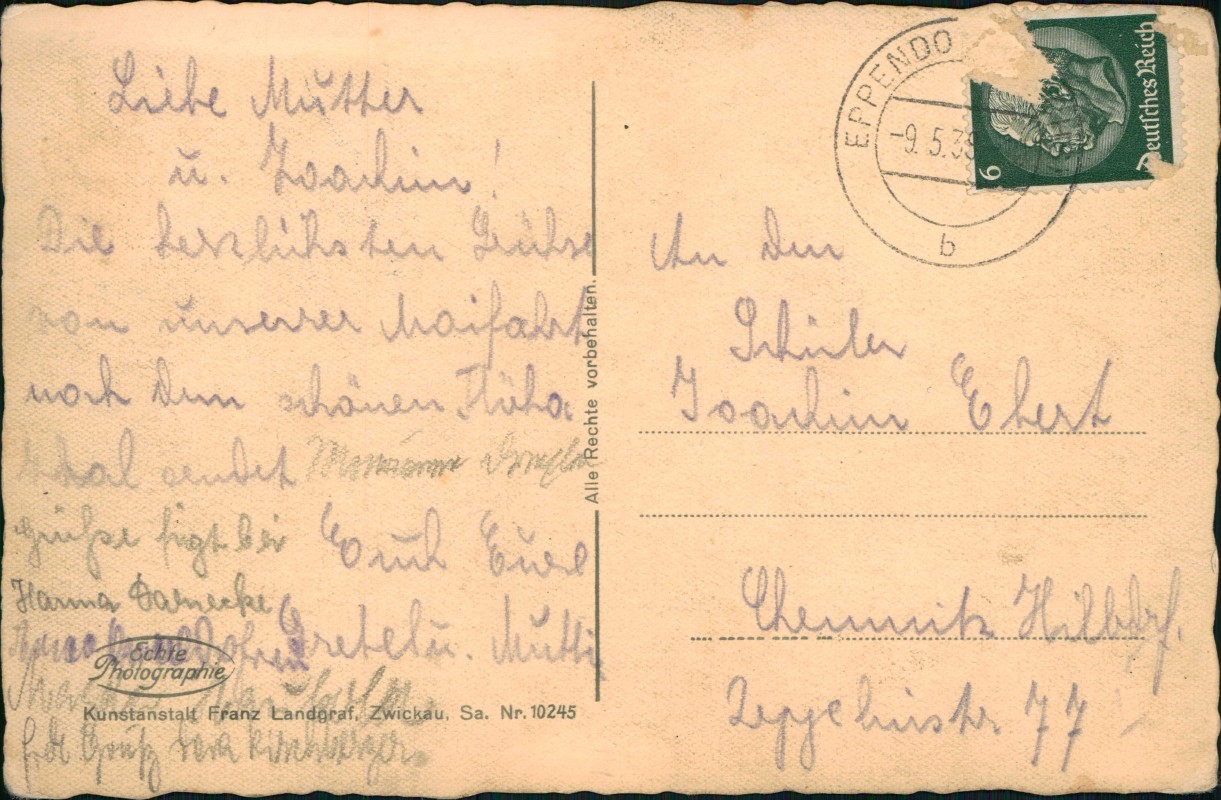 Liebe Mutter
u. Joachim!
Die herzlichsten Grühse
von unserer Maifahrt
nach dem schönen Flöha
thal sendet
Grüße fügt bei Euch Eure
Hanna
Gretel u. Mutti
frdl Gruß
Echte
Photographie
Kunstanstalt Franz Landgraf, Zwickau, Sa. Nr. 10245
Alle Rechte vorbehalten.
EPPENDO
-9.5.38
b
6
Deutsches Reich
An den
Schüler
Joachim Ebert
Chemnitz Hilbdrf.
Zeppelinstr. 77